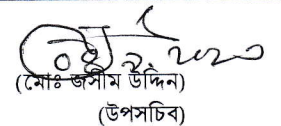 (মোঃ জসীম উদ্দিন)
(উপসচিব)